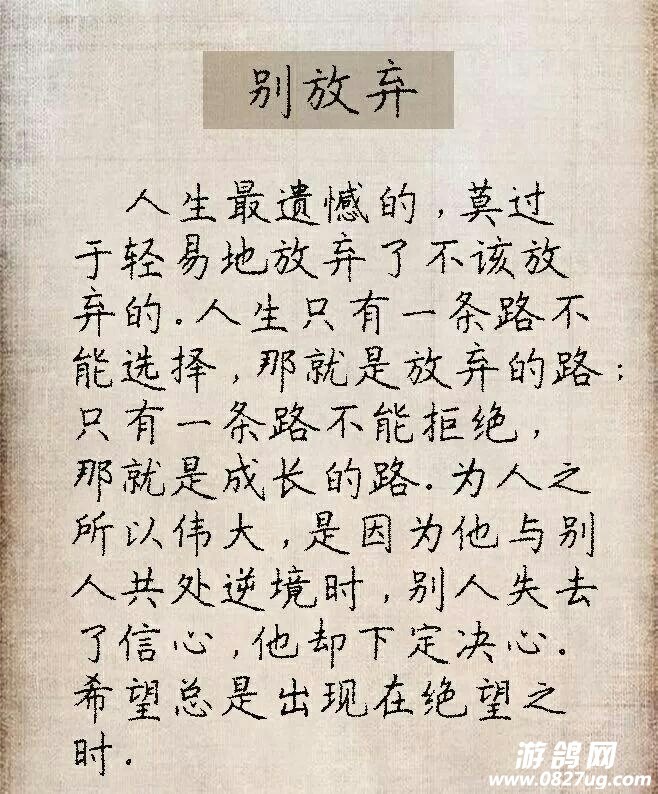 别放弃
人生最遗憾的,莫过
于轻易地放弃了不该放
弃的.人生只有一条路不
能选择,那就是放弃的路;
只有一条路不能拒绝,
那就是成长的路.为人之
所以伟大,是因为他与别
人共处逆境时,别人失去
了信心,他却下定决心.
希望总是出现在绝望之
时.
游鸽网
www.0827ug.com